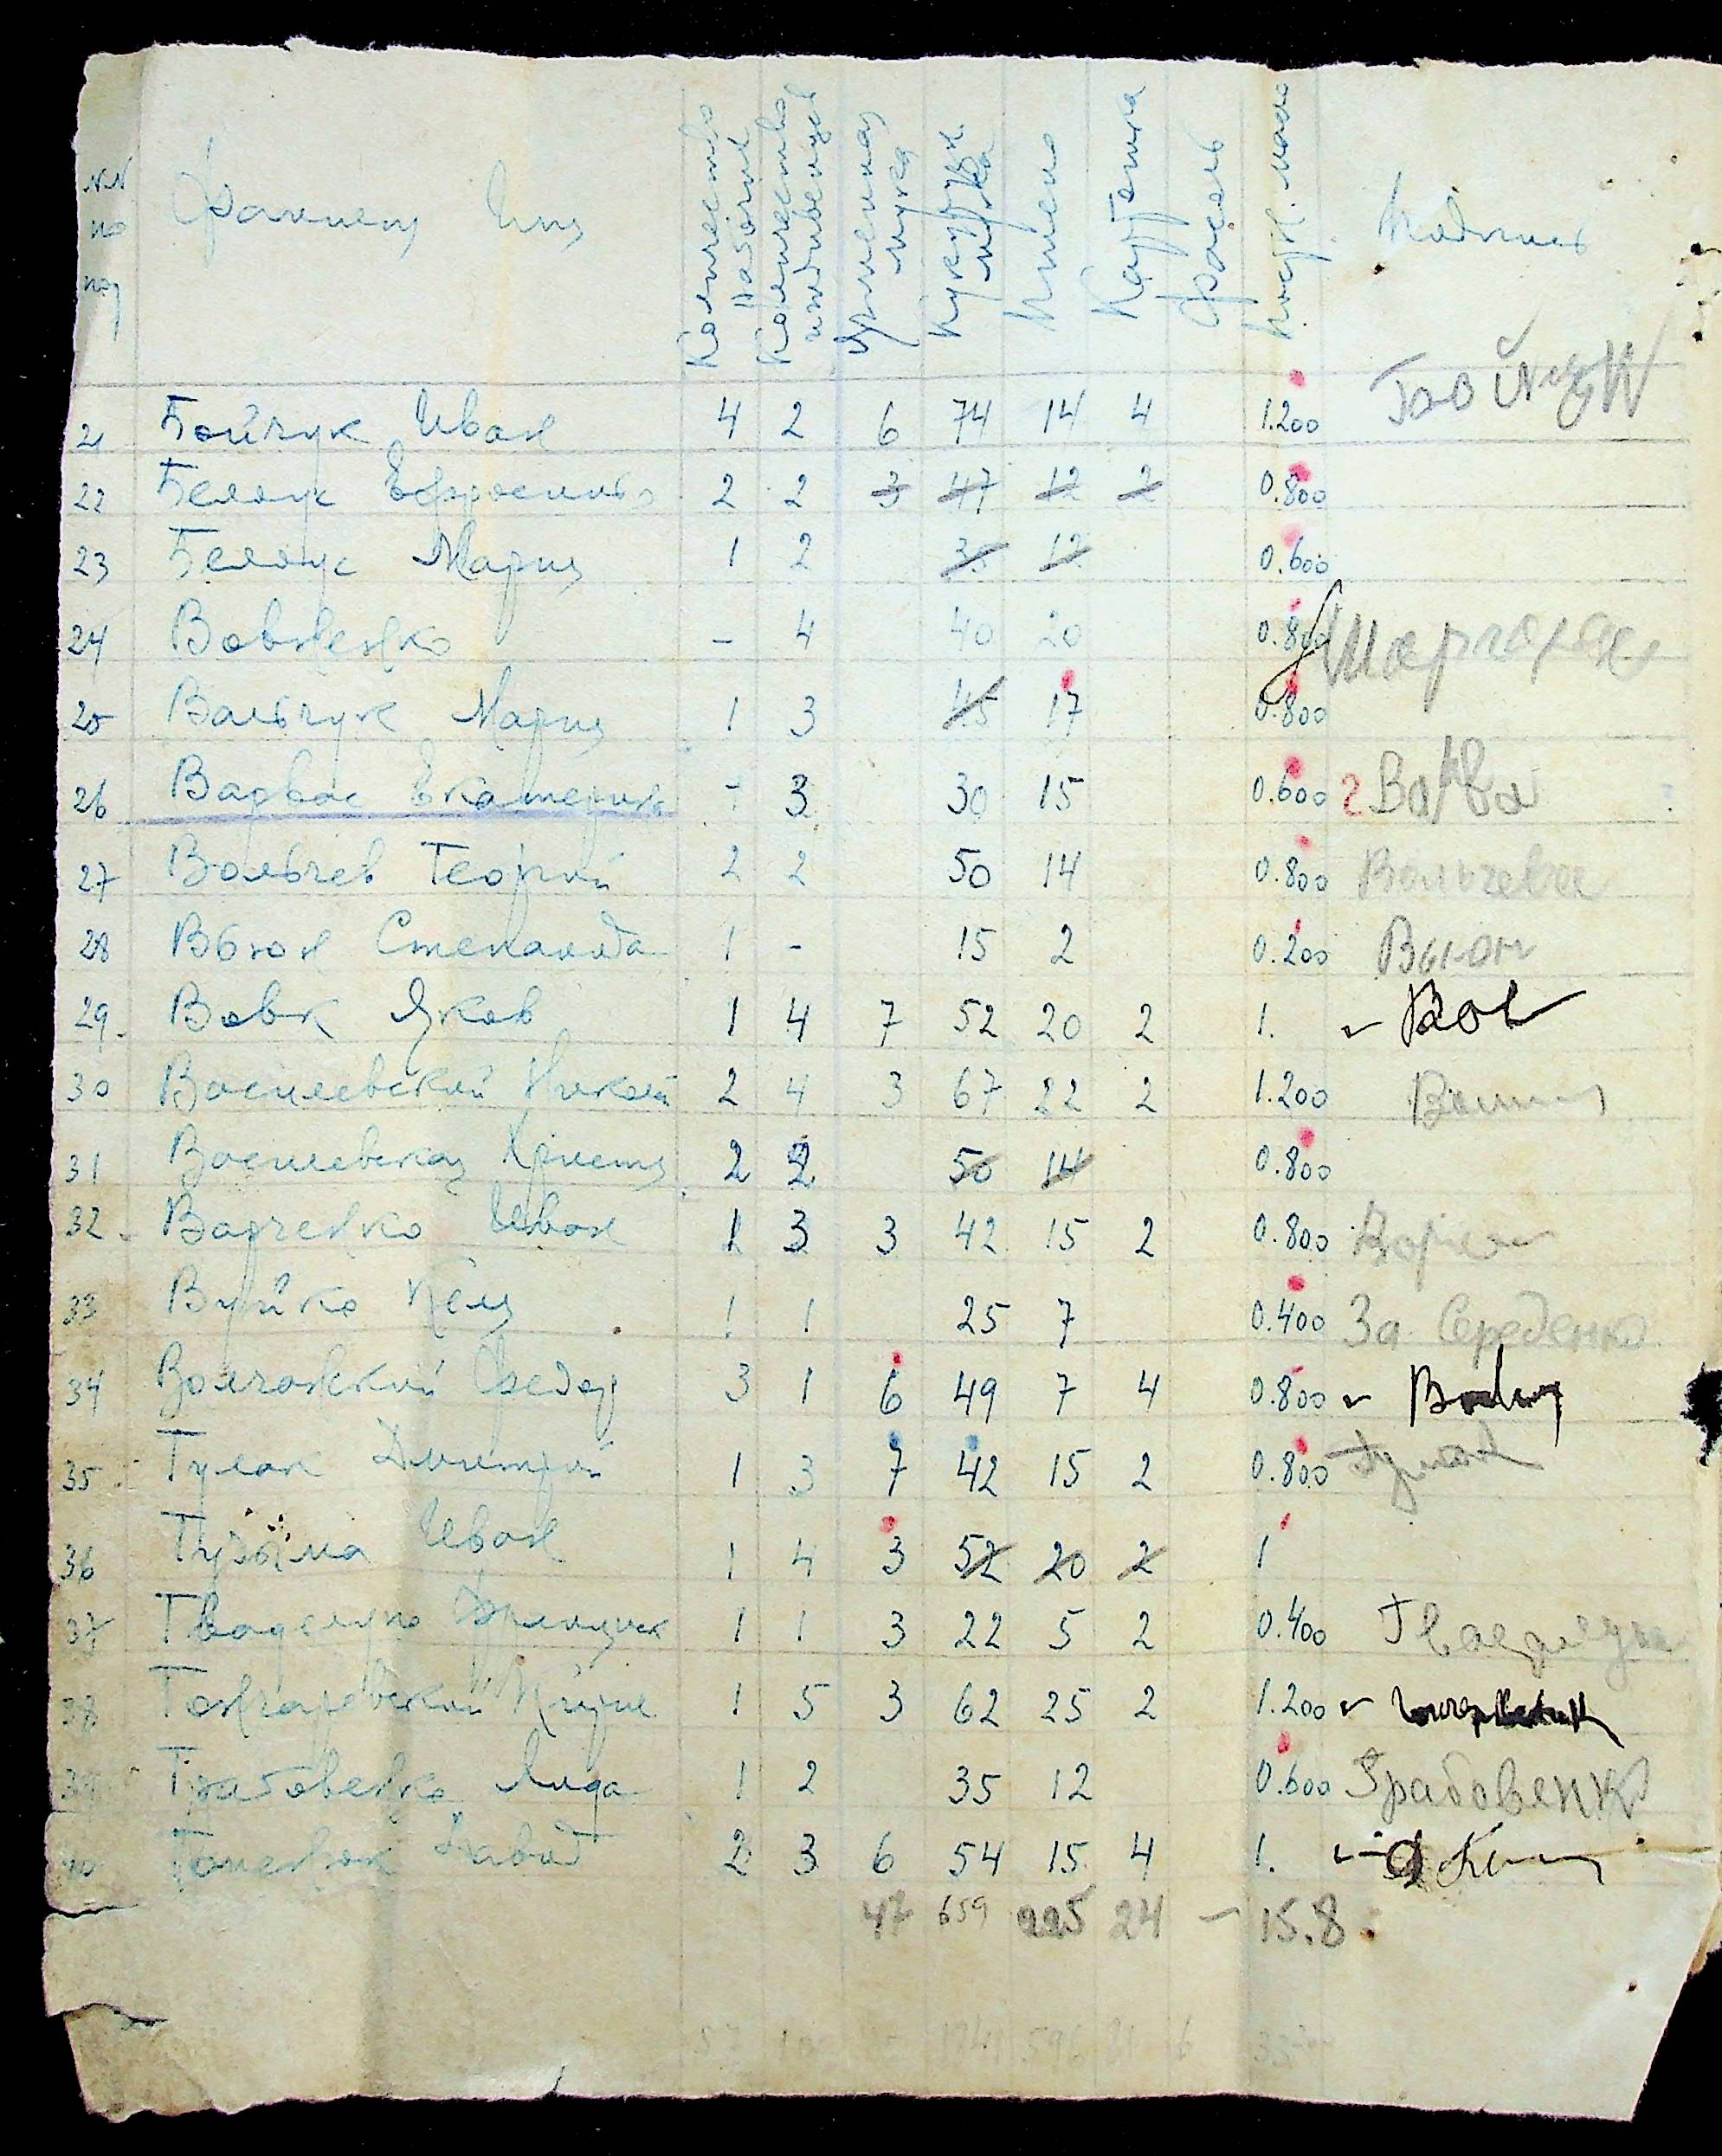 NN по пор Фамилия Имя Количество рабочих Количество иждивенцев Ячменная мука Кукурузн. мука Пшено Картошка Фасоль Постн. масло Подпись
21 Бойчук Иван 4 2 6 74 14 4 1.200 Бойчук
22 Беляук Ефросинья 2 2 3 47 12 2 0.800
23 Беляук Мария 1 2 35 12 0.600
24 Вовненко - 4 40 20 0.800
25 Вальчук Мария 1 3 45 17 0.800
26 Варвас Екатерина - 3 30 15 0.600 2
27 Вольчев Георгий 2 2 50 14 0.800 Вольчева
28 Вьюн Степанида 1 - 15 2 0.200 Вьюн
29. Вовк Яков 1 4 7 52 20 2 1. Вов
30 Василевский Николай 2 4 3 67 22 2 1.200
31 Василевская Христя 2 2 50 14 0.800
32. Варченко Иван 1 3 3 42 15 2 0.800
33 Вуйко 1 1 25 7 0.400 За Середенко
34 Волчанский Федор 3 1 6 49 7 4 0.800
35 Гулак Дмитрий 1 3 7 42 15 2 0.800 Гулак
36 Гудыма Иван 1 4 3 52 20 2 1
37 Гваделупо 1 1 3 22 5 2 0.400
38 Гончаровский 1 5 3 62 25 2 1.200
39 Грабовенко Лида 1 2 35 12 0.600 Грабовенк
40 Давид 2 3 6 54 15 4 1.
47 659 225 24 - 15.8